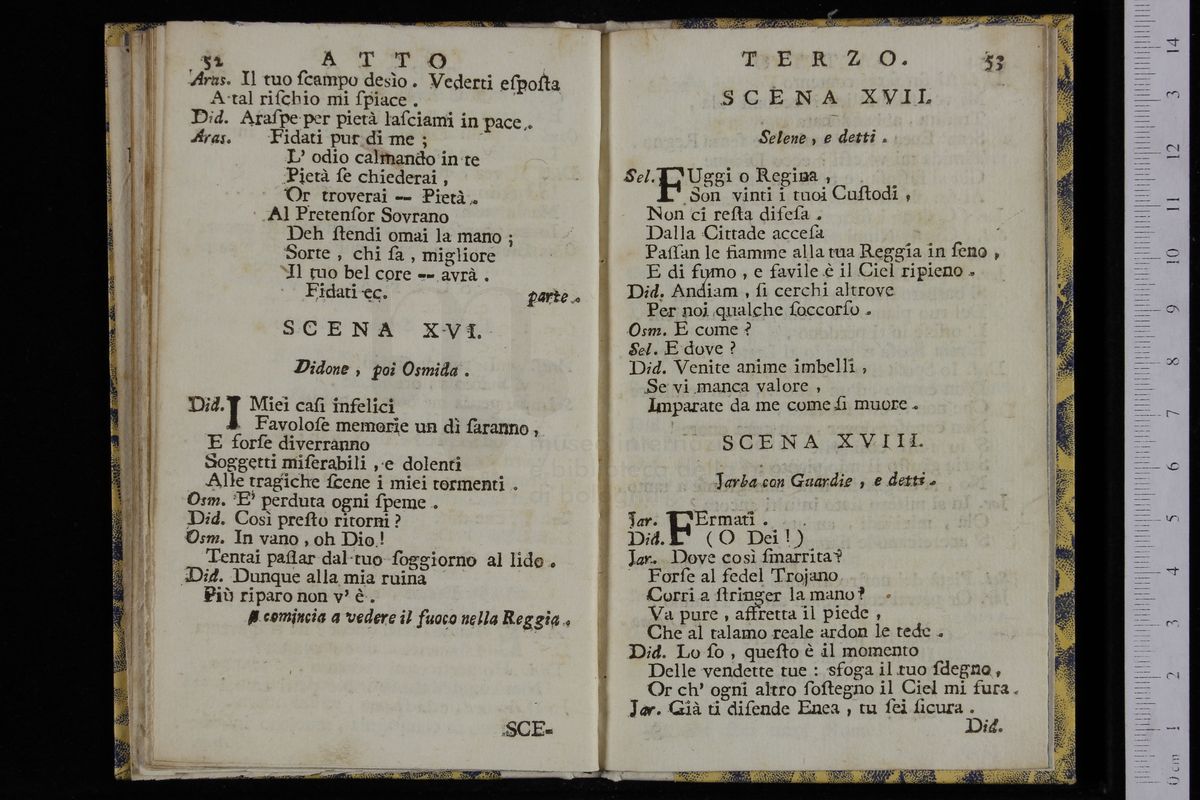 52 ATTO
Aras. Il tuo ſcampo desìo. Vederti eſpoſta
A tal riſchio mi ſpiace.
Did. Araſpe per pietà laſciami in pace.
Aras. Fidati pur di me;
L' odio calmando in te
Pietà ſe chiederai,
Or troverai -- Pietà.
Al Pretenſor Sovrano
Deh ſtendi omai la mano;
Sorte, chi ſa, migliore
Il tuo bel core -- avrà.
Fidati ec. parte.
SCENA XVI.
Didone, poi Osmida.
Did. I Miei caſi infelici
Favoloſe memorie un dì ſaranno,
E forſe diverranno
Soggetti miſerabili, e dolenti
Alle tragiche ſcene i miei tormenti.
Osm. E' perduta ogni ſpeme.
Did. Così preſto ritorni?
Osm. In vano, oh Dio!
Tentai paſſar dal tuo ſoggiorno al lido.
Did. Dunque alla mia ruina
Più riparo non v' è.
comincia a vedere il fuoco nella Reggia.
SCE-
TERZO. 53
SCENA XVII.
Selene, e detti.
Sel. FUggi o Regina,
Son vinti i tuoi Cuſtodi,
Non ci reſta difeſa.
Dalla Cittade acceſa
Paſſan le fiamme alla tua Reggia in ſeno,
E di fumo, e favile è il Ciel ripieno.
Did. Andiam, ſi cerchi altrove
Per noi qualche ſoccorſo.
Osm. E come?
Sel. E dove?
Did. Venite anime imbelli,
Se vi manca valore,
Imparate da me come ſi muore.
SCENA XVIII.
Jarba con Guardie, e detti.
Jar. FErmati.
Did. (O Dei!)
Jar. Dove così ſmarrita?
Forſe al fedel Trojano
Corri a ſtringer la mano?
Va pure, affretta il piede,
Che al talamo reale ardon le tede.
Did. Lo ſo, queſto è il momento
Delle vendette tue: sfoga il tuo ſdegno,
Or ch' ogni altro ſoſtegno il Ciel mi fura.
Jar. Già ti difende Enea, tu ſei ſicura.
Did.
14
13
12
11
10
9
8
7
6
5
4
3
2
1
0 cm